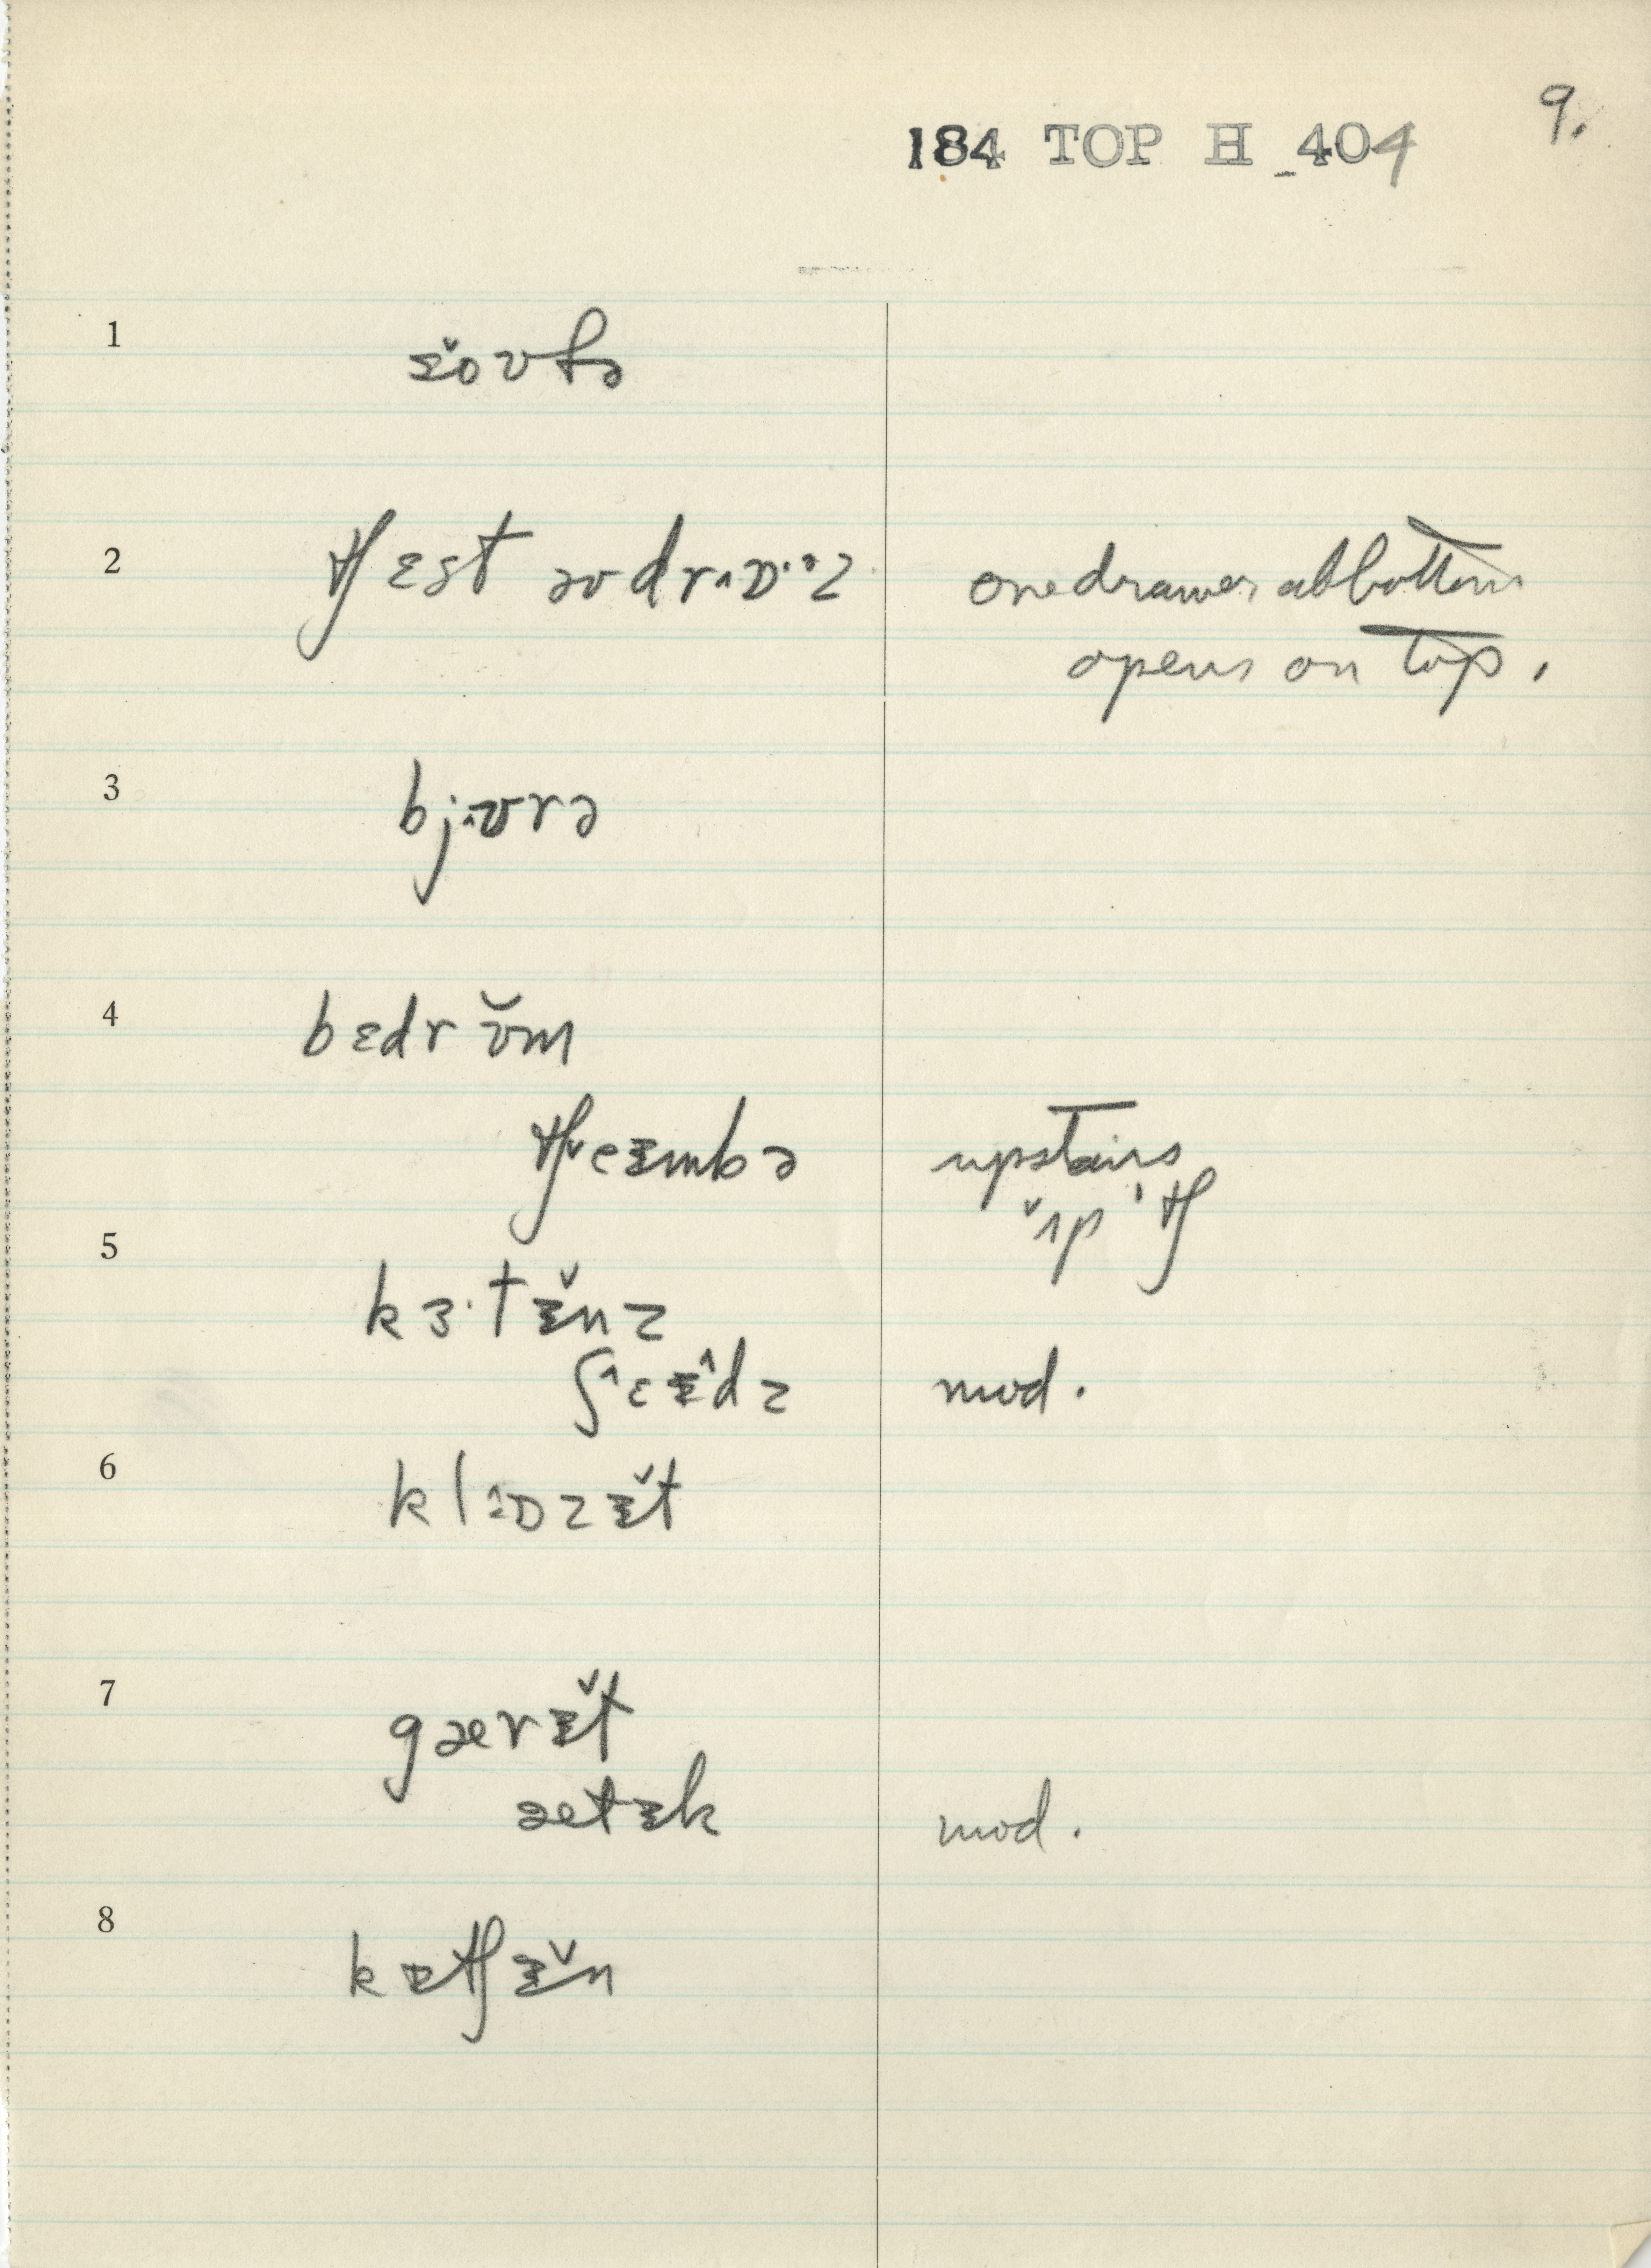 9.
184 TOP H 404
1
2
tʃɛst əv drɔ^ɒ··z onedrawer at bottom
opens on top.
3
bj^ʊrə
4
bɛdrʊ̆m
tʃeᵻmbə upstairs
ʌp tʃ
5
kɜ·tᵻ̆nz
ʃɛᵻdz mod.
6
klɒzᵻ̆t
7
gærᵻ̆t
ætᵻk mod.
8
kᵻtʃᵻ̆n